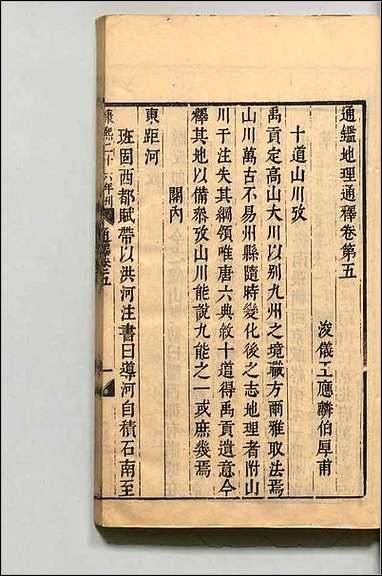 通鑑地理通釋卷第五
浚儀王應麟伯厚甫
十道山川攷
禹貢定高山大川以别九州之境職方爾雅取法焉
山川萬古不易州縣隨時變化後之志地理者附山
川于注失其綱領唯唐六典敘十道得禹貢遺意今
釋其地以備叅攷山川能說九能之一或庶幾焉
關内
東距河
班固西都賦帶以洪河注書曰導河自積石南至
康熙二十六年刊
通釋卷五
一